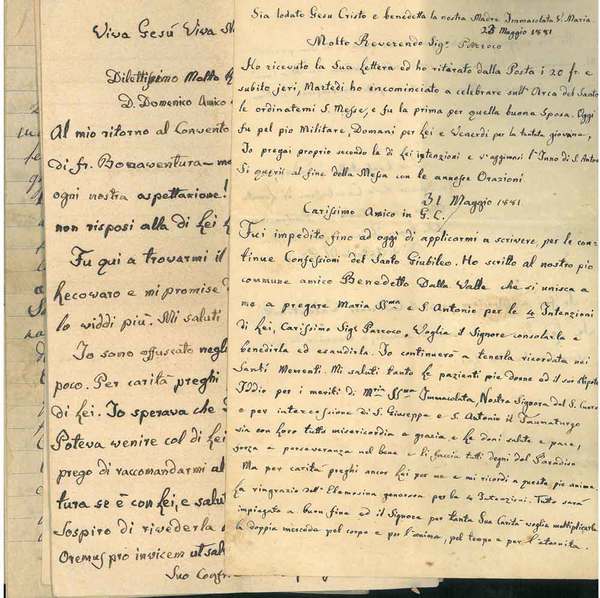 Viva Gesú Viva
Dilettissimo Molto
D. Domenico Amico
Al mio ritorno al Convento
di fr. Bonaventura
ogni nostra aspettazione!
non risposi alla di Lei
Fu qui a trovarmi il
Recowaro e mi promise
lo widdi più. Mi saluti
Io sono offuscato negli
poco. Per carità preghi
di Lei. Io sperava che
Poteva wenire col di Lei
prego di raccomandarmi al
tura se è con Lei, e salut
Sospiro di riwederla
Oremus pro invicem ut salv
Suo Confr
Sia lodato Gesu Cristo e benedetta la nostra Madre Immacolata Mª Maria
Maggio 1881
Molto Reverendo Sigr Parroco
Ho ricevuto la Sua Lettera ed ho ritirato dalla Posta i 20 fr. e
subito jeri, Martedi ho incominciato a celebrare sull' Arca del Santo
le ordinatemi S. Messe, e fu la prima per quella buona Sposa. Oggi
fu pel pio Militare, Domani per Lei e Venerdi per la giovane,
Io pregai proprio secondo la di Lei intenzioni e v'aggiunsi l'Inno di S. Antonio
Si quæris al fine della Messa con le annesse Orazioni.
31 Maggio 1881
Carissimo Amico in G.C.
Fui impedito fino ad oggi di applicarmi a scrivere, per le con-
tinue Confessioni del Santo Giubileo. Ho scritto al nostro pio
commune amico Benedetto Dalla Valle che si unisca a
me a pregare Maria SSma e S. Antonio per le 4 Intenzioni
di Lei, Carissimo Sigr Parroco. Voglia il Signore consolarla e
benedirla ed esaudirla. Io continuerò a tenerla ricordata nei
Santi Mementi. Mi saluti tanto le pazienti pie donne ed il suo Nipote
Iddio per i meriti di Mria SSma Immacolata, Nostra Signora del S. Cuore
e per intercessione di S. Giuseppe e S. Antonio il Taumaturgo
sia con loro tutto misericordia e grazia, e Le doni salute e pace,
forza e perseveranza nel bene e li faccia tutti degni del Paradiso
Ma per carita preghi ancor Lei per me e mi ricordi a queste pie anime.
La ringrazio dell' Elemosina generosa per le 4 Intenzioni. Tutto sarà
impiegato a buon fine ed il Signore per tanta Sua Carità voglia moltiplicarle
la doppia mercede pel corpo e per l'anima, pel tempo e per l'eternita.